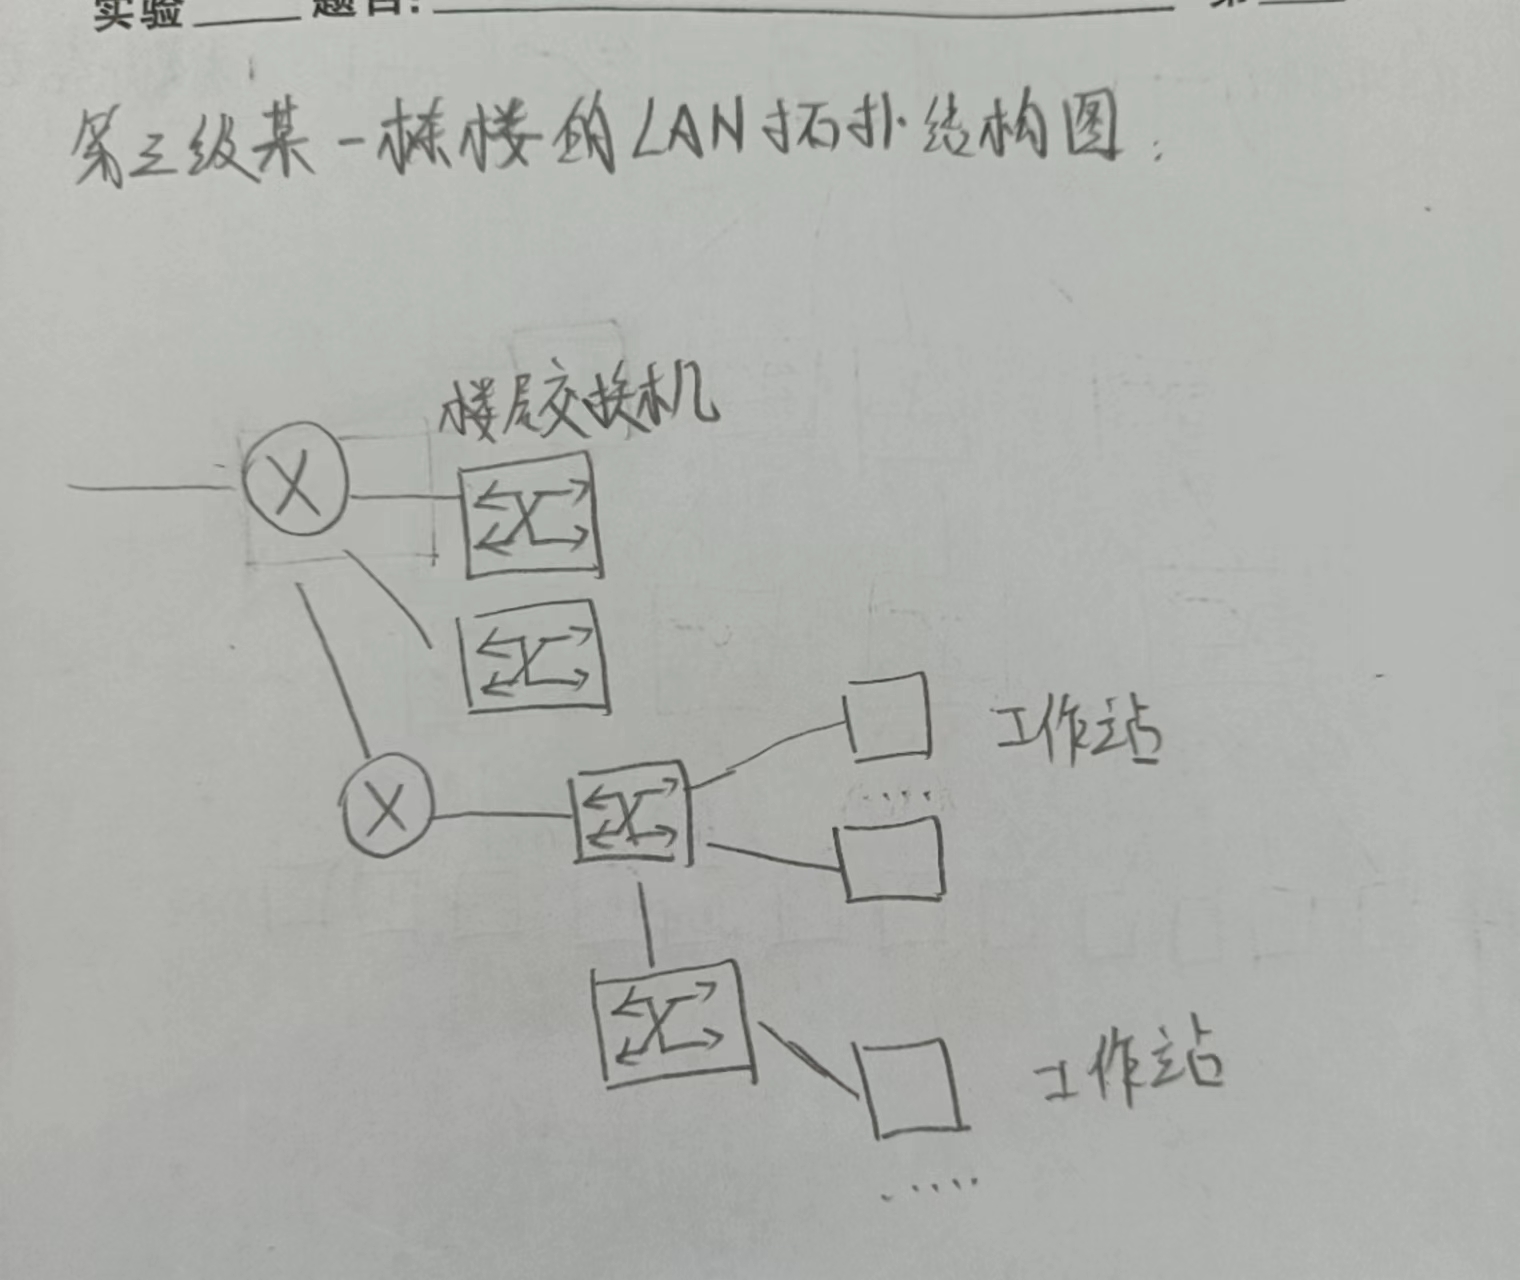 实验____ 题目:____ 第____
第三级某一栋楼的LAN拓扑结构图:
楼层交换机
工作站
....
工作站
.....